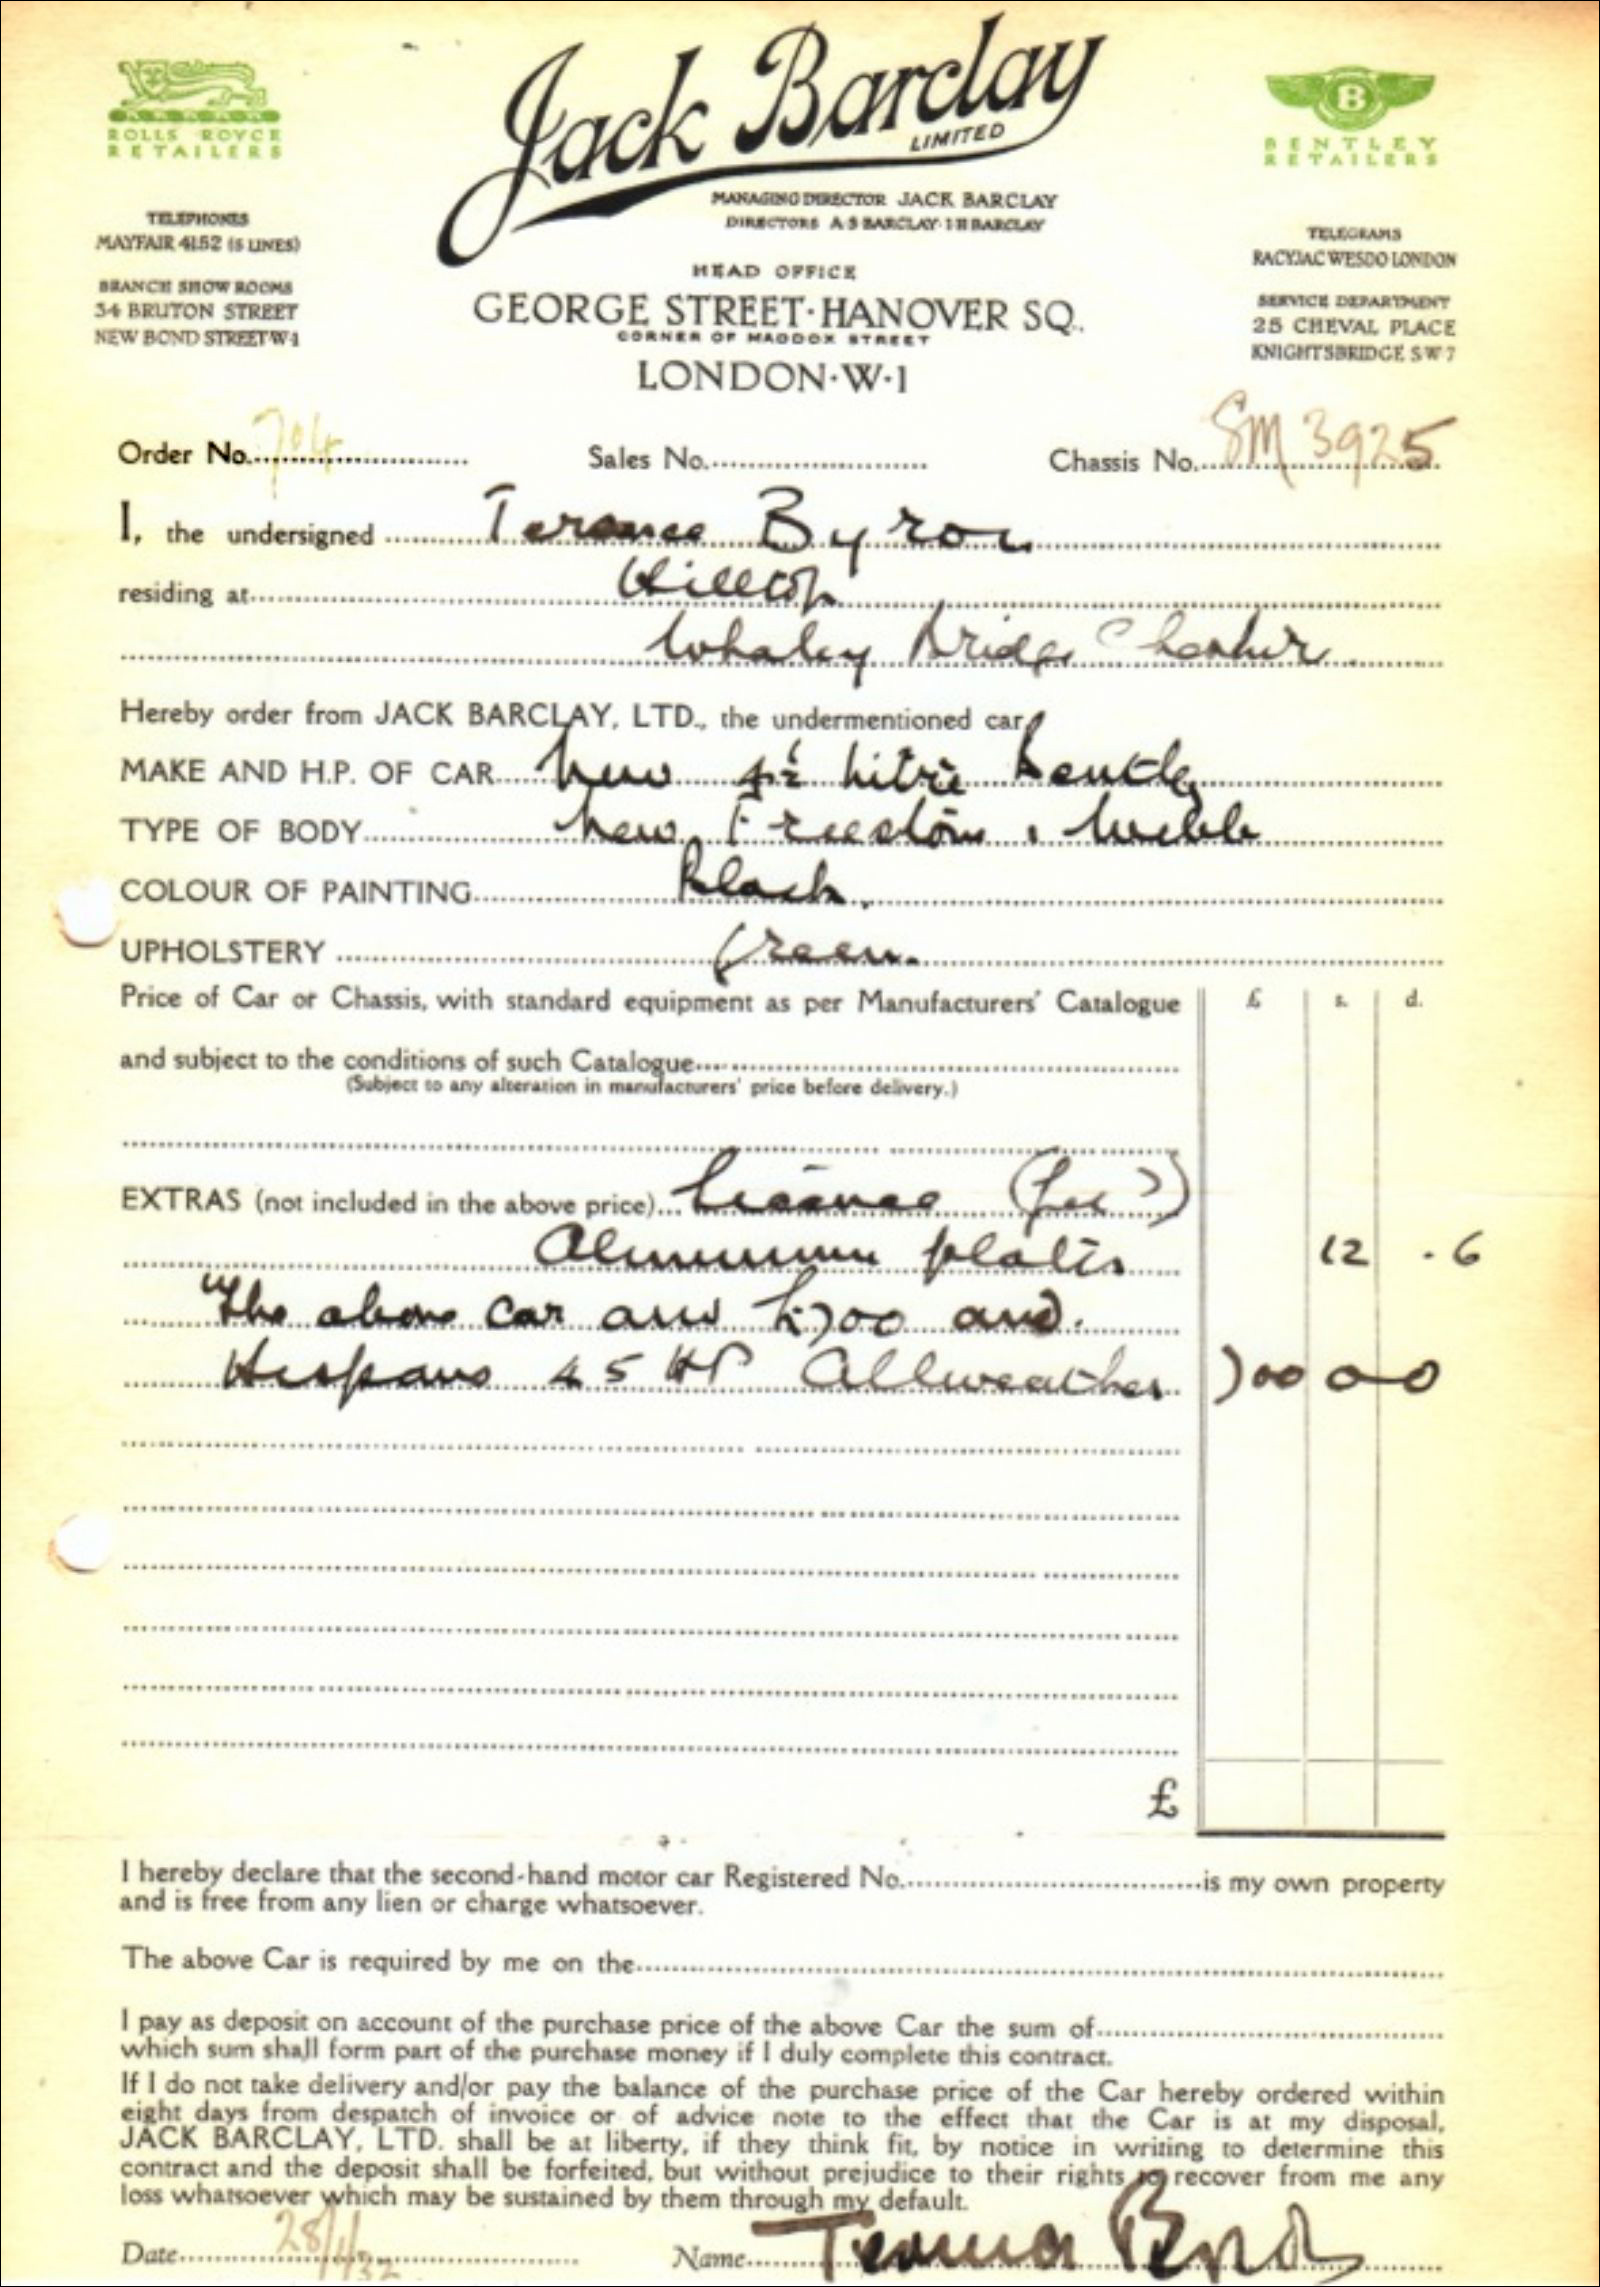 Jack Barclay
LIMITED
ROLLS ROYCE
RETAILERS
B
BENTLEY
RETAILERS
MANAGING DIRECTOR JACK BARCLAY
DIRECTORS A S BARCLAY · I H BARCLAY
TELEPHONES
MAYFAIR 4152 (5 LINES)
BRANCH SHOW ROOMS
34 BRUTON STREET
NEW BOND STREET W·1
TELEGRAMS
RACYJAC WESDO LONDON
SERVICE DEPARTMENT
25 CHEVAL PLACE
KNIGHTSBRIDGE S W 7
HEAD OFFICE
GEORGE STREET · HANOVER SQ.
CORNER OF MADDOX STREET
LONDON · W · 1
Order No. 704 Sales No. Chassis No. SM 3925
I, the undersigned Terence Byron
residing at Hilltop
Whaley Bridge Cheshire
Hereby order from JACK BARCLAY, LTD., the undermentioned car
MAKE AND H.P. OF CAR New litre Bentley
TYPE OF BODY New Freestone & Webb
COLOUR OF PAINTING Black.
UPHOLSTERY Green.
Price of Car or Chassis, with standard equipment as per Manufacturers' Catalogue £ s. d.
and subject to the conditions of such Catalogue
(Subject to any alteration in manufacturers' price before delivery.)
EXTRAS (not included in the above price) Licence
Aluminium plates 12 . 6
The above car and £700 and.
Hispano 45 HP Allweather 700 0 0
£
I hereby declare that the second-hand motor car Registered No. is my own property
and is free from any lien or charge whatsoever.
The above Car is required by me on the
I pay as deposit on account of the purchase price of the above Car the sum of
which sum shall form part of the purchase money if I duly complete this contract.
If I do not take delivery and/or pay the balance of the purchase price of the Car hereby ordered within
eight days from despatch of invoice or of advice note to the effect that the Car is at my disposal,
JACK BARCLAY, LTD. shall be at liberty, if they think fit, by notice in writing to determine this
contract and the deposit shall be forfeited, but without prejudice to their rights to recover from me any
loss whatsoever which may be sustained by them through my default.
Date 28/1/32 Name Terence Byron